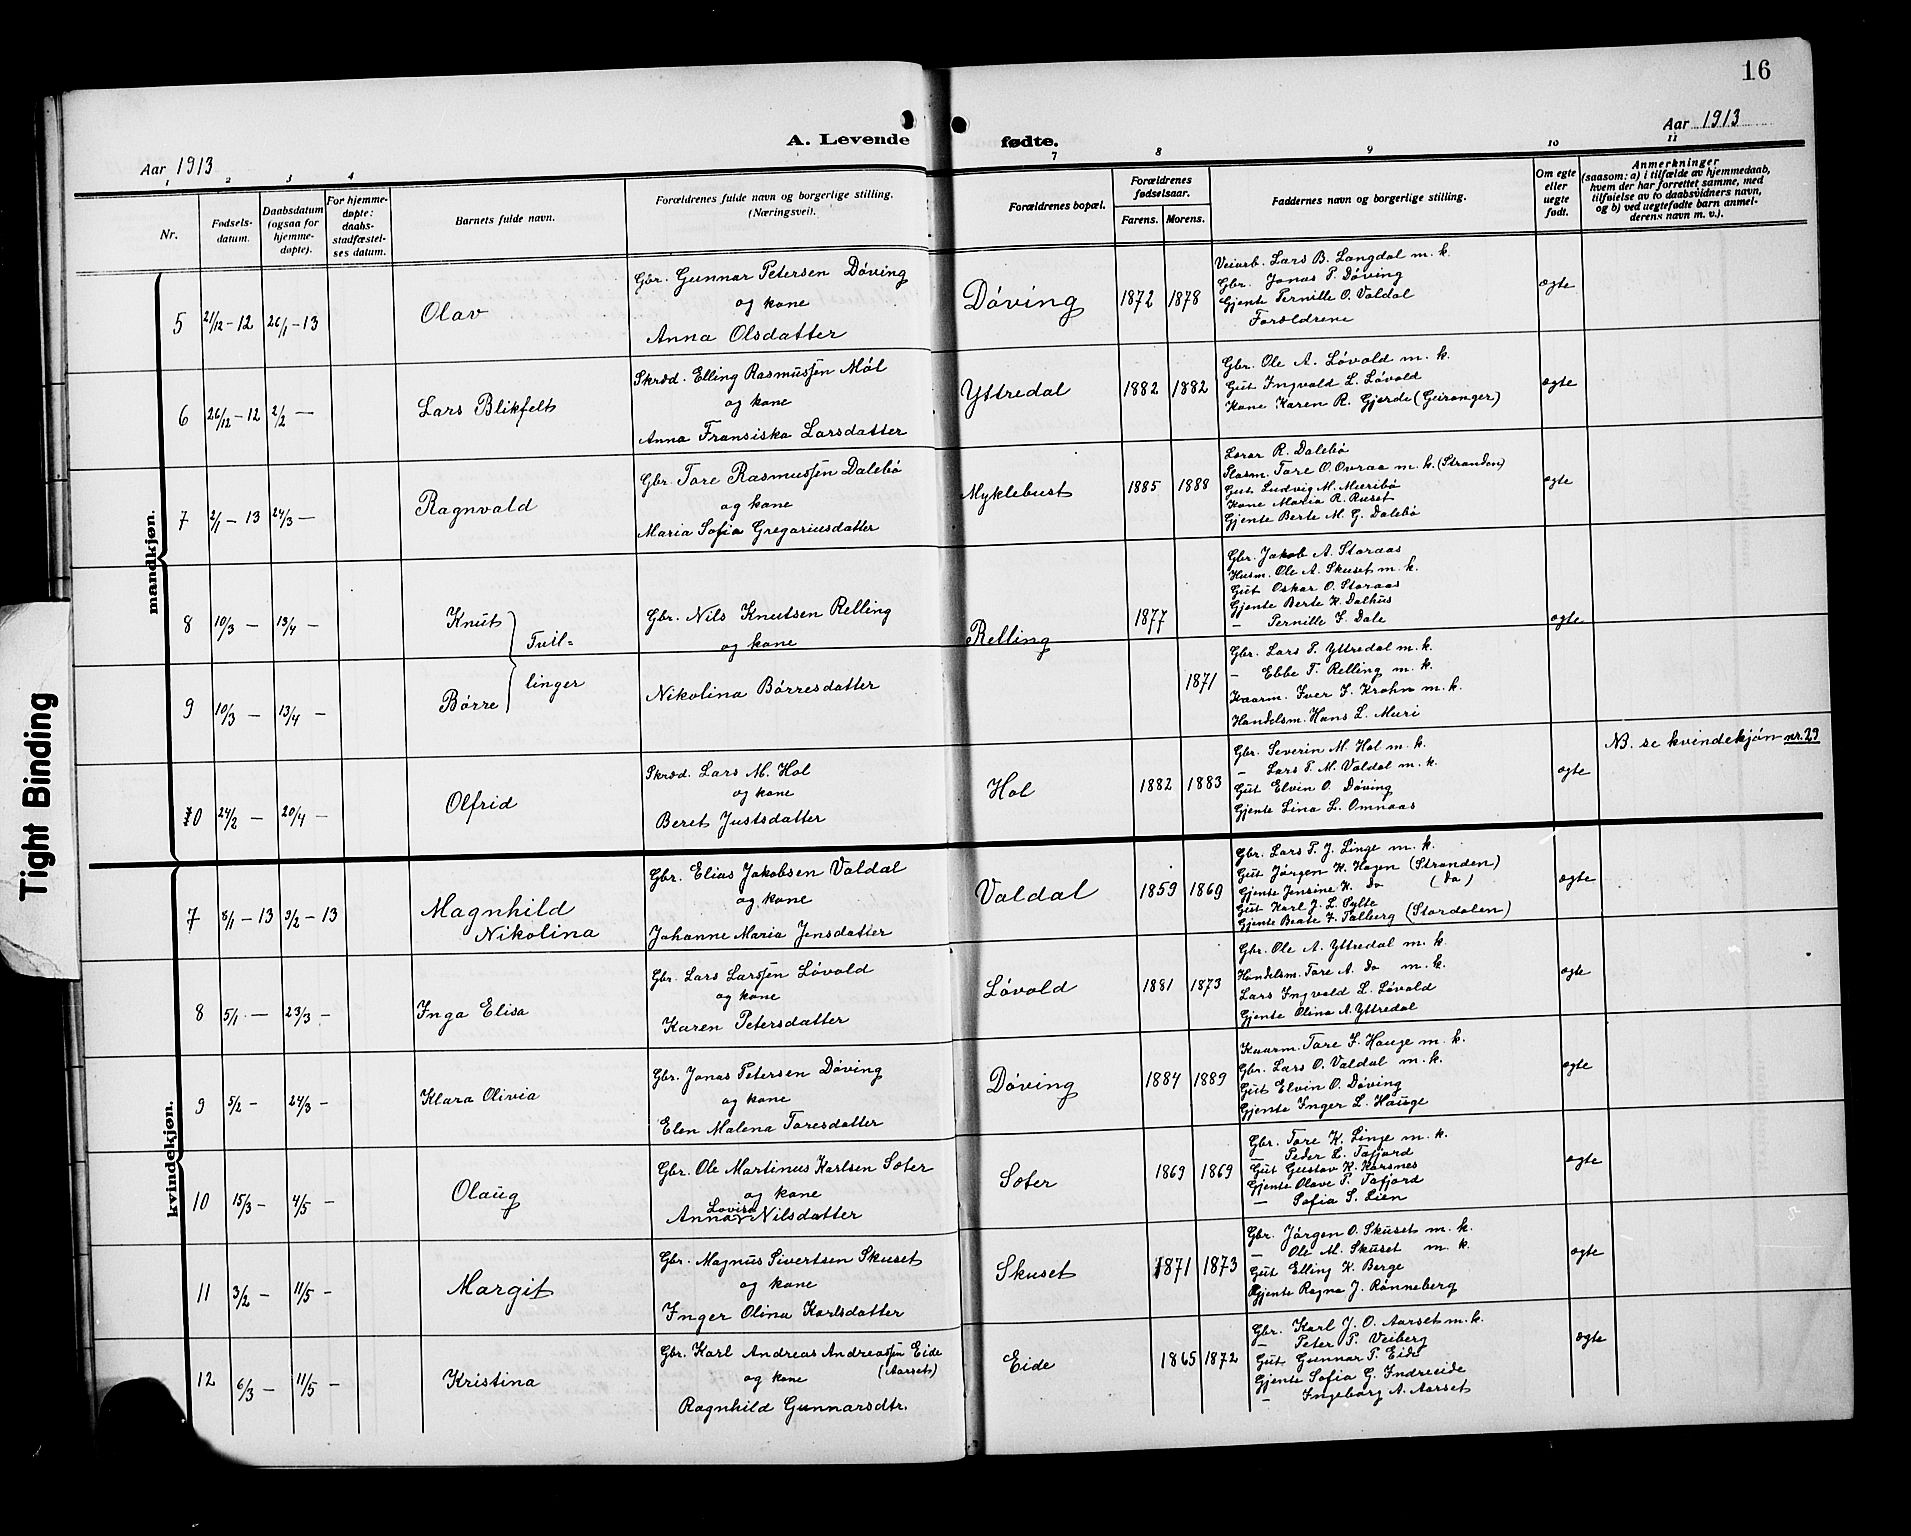 16
A. Levende fødte.
Aar 1913
Aar 1913
1 2 3 4 7 8 9 10 11
Nr.
Fødsels-
datum.
Daabsdatum
(ogsaa for
hjemme-
døpte).
For hjemme-
døpte:
daabs-
stadfæstel-
ses datum.
Barnets fulde navn.
Forældrenes fulde navn og borgerlige stilling.
(Næringsvei).
Forældrenes bopæl.
Forældrenes
fødselsaar.
Farens. Morens.
Faddernes navn og borgerlige stilling.
Om egte
eller
uegte
født.
Anmerkninger
(saasom: a) i tilfælde av hjemmedaab,
hvem der har forrettet samme, med
tilføielse av to daabsvidners navn,
og b) ved uegtefødte barn anmel-
derens navn m. v.).
mandkjøn.
5 21/12 - 12 26/1 - 13
Olav
Gbr. Gunnar Petersen Døving
og kone
Anna Olsdatter
Døving 1872 1878
Veiarb. Lars B. Langdal m. k.
Gbr. Jonas P. Døving
Gjente Pernille O. Valdal
Forældrene
ægte
6 26/12 - 12 2/2 -
Lars Blikfelt
Skræd. Elling Rasmussen Møl
og kone
Anna Fransiska Larsdatter
Yttredal 1882 1882
Gbr. Ole A. Løvold m. k.
Gut Ingvald L. Løvold
Kone Karen R. Gjerde (Geiranger)
ægte
7 2/1 - 13 24/3 -
Ragnvald
Gbr. Tore Rasmussen Dalebø
og kone
Maria Sofia Gregoriusdatter
Myklebust 1885 1888
Lærer R. Dalebø
Plasm. Tore O. Ovraa m. k. (Stranden)
Gut Ludvig M. Muribø
Kone Maria R. Ruset
Gjente Berte M. G. Dalebø
ægte
8 10/3 - 13/4 -
Knut
Tvil-
linger
Gbr. Nils Knutsen Relling
og kone
Relling 1877
Gbr. Jakob A. Storaas
Husm. Ole A. Skuset m. k.
Gut Oskar O. Storaas
Gjente Berte K. Dalhus
- Pernille I. Dale
ægte
9 10/3 - 13/4 -
Børre
Nikolina Børresdatter
1871
Gbr. Lars P. Yttredal m. k.
- Ebbe T. Relling m. k.
Kaarm. Iver I. Krohn m. k.
Handelsm. Hans L. Muri
10 24/2 - 20/4 -
Olfrid
Skræd. Lars M. Hol
og kone
Beret Justsdatter
Hol 1882 1883
Gbr. Severin M. Hol m. k.
- Lars P. M. Valdal m. k.
Gut Elvin O. Døving
Gjente Lina L. Omnaas
ægte
NB. se kvindekjøn nr. 29
kvindekjøn.
7 8/1 - 13 9/2 - 13
Magnhild
Nikolina
Gbr. Elias Jakobsen Valdal
og kone
Johanne Maria Jensdatter
Valdal 1859 1869
Gbr. Lars P. J. Linge m. k.
Gut Jørgen K. Hagen (Stranden)
Gjente Jensine K. do (do)
Gut Karl J. L. Sylte
Gjente Beate K. Talberg (Stordalen)
ægte
8 5/1 - 23/3 -
Inga Elisa
Gbr. Lars Larssen Løvold
og kone
Karen Petersdatter
Løvold 1881 1873
Gbr. Ole A. Yttredal m. k.
Handelsm. Tore A. do m. k.
Lars Ingvald L. Løvold
Gjente Olina A. Yttredal
ægte
9 5/2 - 24/3 -
Klara Olivia
Gbr. Jonas Petersen Døving
og kone
Elen Malena Toresdatter
Døving 1884 1889
Kaarm. Tore I. Hauge m. k.
Gbr. Lars O. Valdal m. k.
Gut Elvin O. Døving
Gjente Inger L. Hauge
ægte
10 15/3 - 4/5 -
Olaug
Gbr. Ole Martinus Karlsen Sæter
og kone
Lovise
Anna Nilsdatter
Sæter 1869 1869
Gbr. Tore K. Linge m. k.
- Peder L. Tafjord
Gut Gustav K. Korsnes
Gjente Olave P. Tafjord
- Sofia S. Lien
ægte
11 3/2 - 11/5 -
Margit
Gbr. Magnus Sivertsen Skuset
og kone
Inger Olina Karlsdatter
Skuset 1871 1873
Gbr. Jørgen O. Skuset m. k.
- Ole M. Skuset m. k.
Gut Elling K. Berge
Gjente Ragna J. Rønneberg
ægte
12 6/3 - 11/5 -
Kristina
Gbr. Karl Andreas Andreassen Eide
og kone (Aarset)
Ragnhild Gunnarsdtr.
Eide 1865 1872
Gbr. Karl J. O. Aarset m. k.
- Peter P. Veiberg
Gut Gunnar P. Eide
Gjente Sofia G. Indreeide
- Ingeborg A. Aarset
ægte
Tight Binding